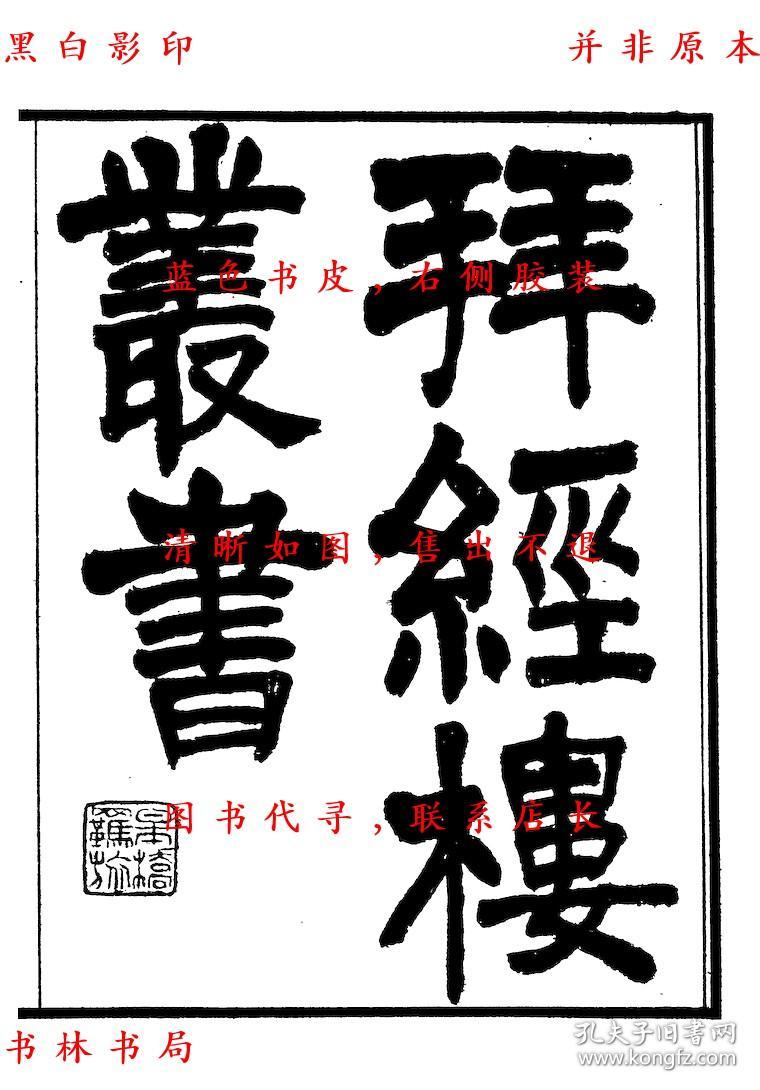 黑白影印
并非原本
拜經樓
叢書
蓝色书皮,右侧胶装
清晰如图,售出不退
图书代寻,联系店长
书林书局
孔夫子旧书网
www.kongfz.com